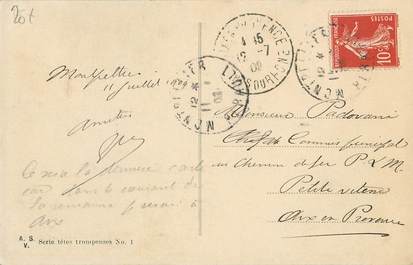 20t
Montpellier
11 Juillet 1909
Amitiés
Ce sera la dernière carte
car dans le courant de
la semaine je serai à
Aix
A. S.
V.
Serie têtes trompeuses No. 1
POSTES
10
MONTPELLIER
MONTPELLIER
AIX-EN-PROVENCE
BOUCHES DU RHONE
Monsieur Padovani
Chef de Commis principal
au Chemin de fer P L M
Petite vitesse
Aix en Provence